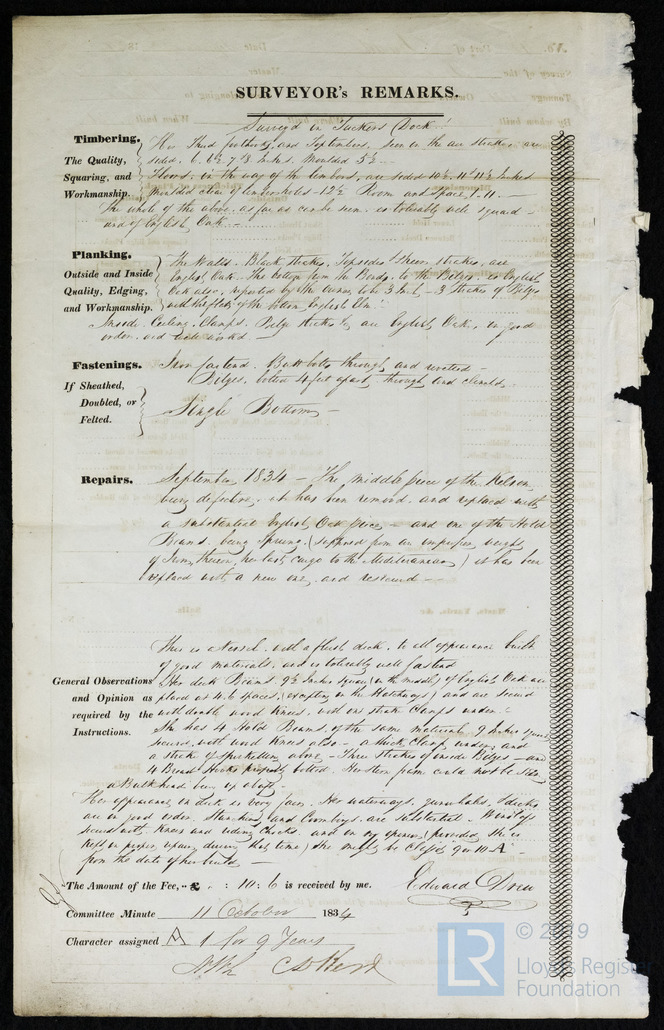 SURVEYOR's REMARKS.
Survey'd in Tuckers Dock
Timbering.
The Quality,
Squaring, and
Workmanship.
Her Third futtocks, and Top timbers, seen in the air strakes, are
sided, 6. 6½ 7 & 8 Inches. Moulded 5½
Floors, in the way of the limbers, are sided 10½. 11 & 11½ Inches
Moulded clear of limber holes - 12½ Room and space, 1.11 -
The whole of the above, as far as can be seen, is tolerably well squared
and of English Oak. -
Planking.
Outside and Inside
Quality, Edging,
and Workmanship.
The Walls - Black strakes, Topsides & Sheer strakes, are
English Oak. The bottom from the Bends, to the Bilges, is English
Oak also, reported by the owner, to be 3 Inch - 3 strakes of Bilges
with the flat, of the bottom English Elm.
Inside, Ceiling, Clamps, Bilge strakes &c are English Oak, in good
order, and well worked -
Fastenings.
If Sheathed,
Doubled, or
Felted.
Iron fastend. Butt bolts through and riveted -
Bilges, bolted 4 feet apart, through and clench'd,
Single Bottom -
Repairs.
September, 1834 - The middle piece of the Kelson,
being defective, it has been removed, and replaced with
a substantial English Oak piece - and one of the Hold
Beams, being sprung, (supposed from an imperfect weight
of Iron, thereon, her last cargo to the Mediteranean) it has been
replaced with a new one, and resecured -
General Observations
and Opinion as
required by the
Instructions.
This is a Vessel, with a flush deck, to all appearance built
of good materials, and is tolerably well fasten'd
Her deck Beams, 9½ Inches square (in the middle) of English Oak are
placed at 4.6 spaces, (excepting in the Hatchways) and are secured
with double wood Knees, with one strake Clamps under.
She has 4 Hold Beams, of the same material, 9 Inches square
secured with wood Knees also - a thick Clamp under, and
a strake of spirketting above - Three strakes of inside Bilges - and
4 Breast Hooks properly bolted. Her stern frame could not be seen
a Bulkhead being up abaft -
Her appearance on deck is very fair. Her waterways, gunwhales, & decks
are in good order. Stanchions, and Coamings are substantial - Windlass
secured with Knees and riding Chocks. and in my opinion (provided, she is
kept in proper repair during that time) she might be Class'd 9 or 10 A
from the date of her build -
The Amount of the Fee, £ : 10 : 6 is received by me.
Edward Drew
Committee Minute 11 October 1834
Character assigned A 1 for 9 Years
© 2019
LR
Lloyd's Register
Foundation